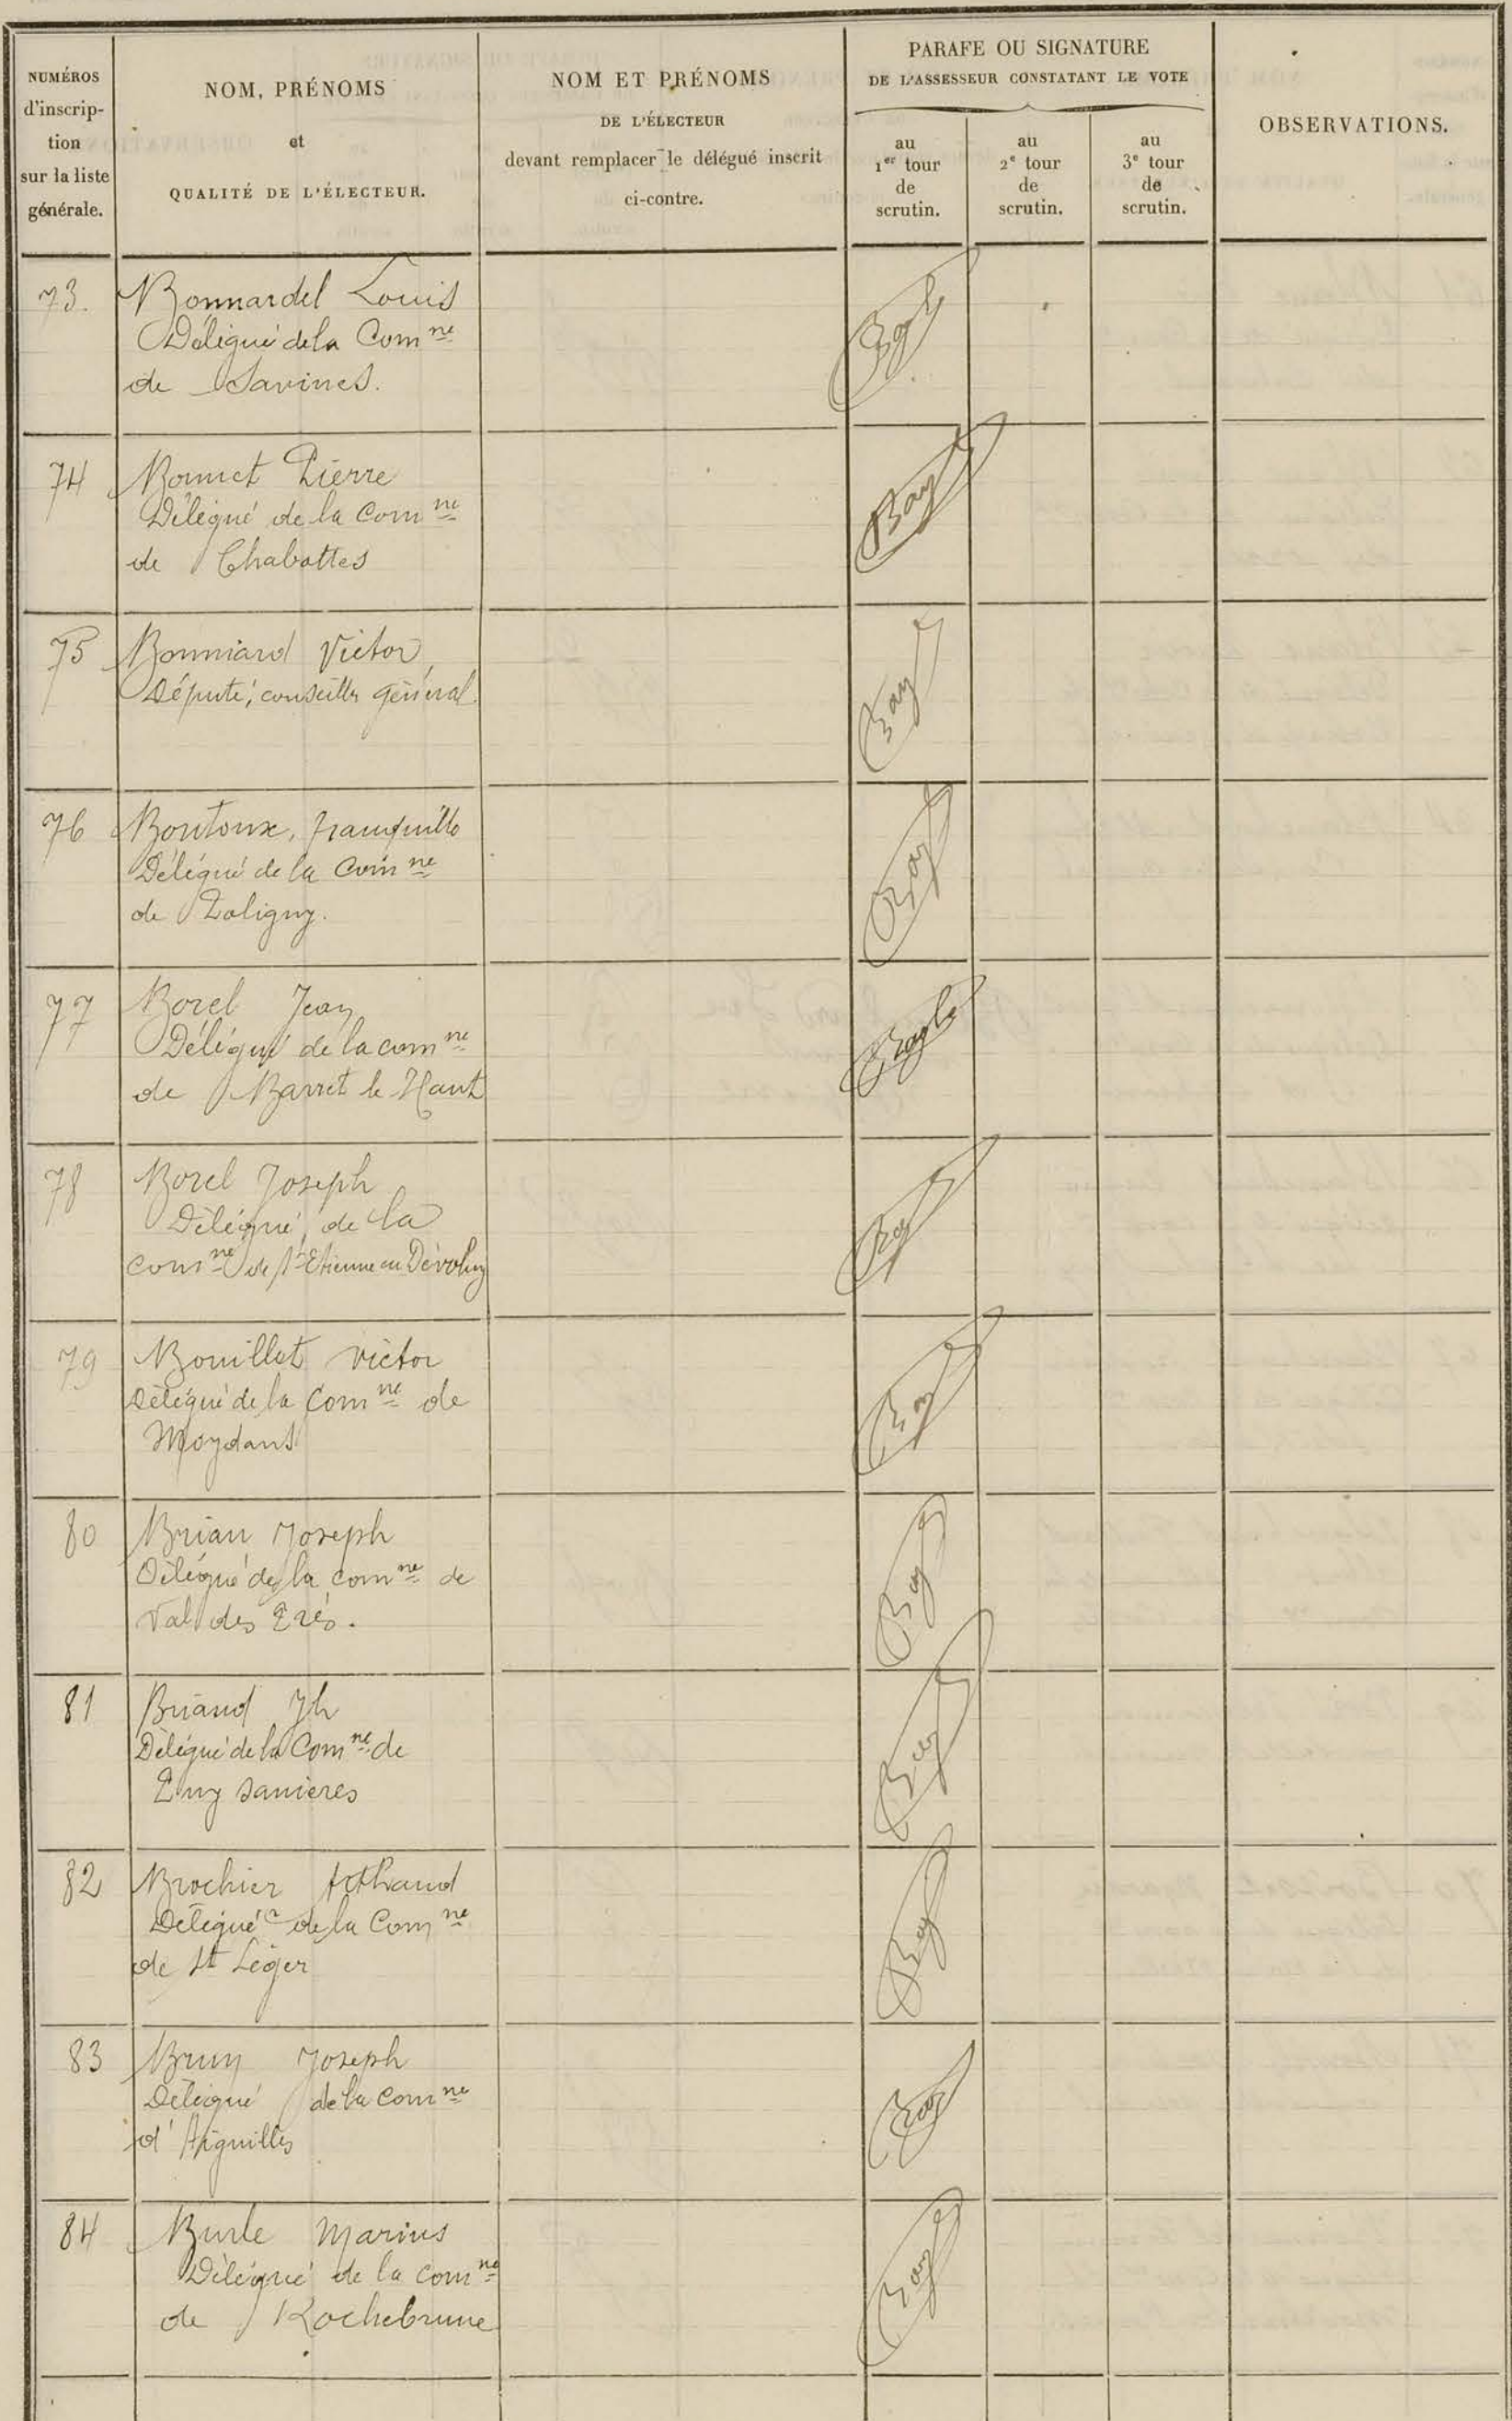 NUMÉROS
d'inscrip-
tion
sur la liste
générale.
NOM, PRÉNOMS
et
QUALITÉ DE L'ÉLECTEUR.
NOM ET PRÉNOMS
DE L'ÉLECTEUR
devant remplacer le délégué inscrit
ci-contre.
PARAFE OU SIGNATURE
DE L'ASSESSEUR CONSTATANT LE VOTE
au
1er tour
de
scrutin.
au
2e tour
de
scrutin.
au
3e tour
de
scrutin.
OBSERVATIONS.
73. Bonnardel Louis
Délégué de la Comne
de Savines.
74 Bonnet Pierre
Délégué de la Comne
de Chabottes
75 Bonniard Victor
Député, conseiller général
76 Bontoux, tranquille
Délégué de la Comne
de Poligny.
77 Borel Jean
Délégué de la comne
de Barret le Haut
78 Borel Joseph
Délégué de la
comne de St Etienne en Dévoluy
79 Bouillet Victor
Délégué de la Comne de
Moydans
80 Brian Joseph
Délégué de la comne de
Val des Prés.
81 Briand Jh
Délégué de la Comne de
Puy Sanieres
82 Brochier Arthaud
Délégué de la Comne
de St Léger
83 Brun Joseph
Délégué de la Comne
d'Aiguilles
84 Burle Marius
Délégué de la comne
de Rochebrune